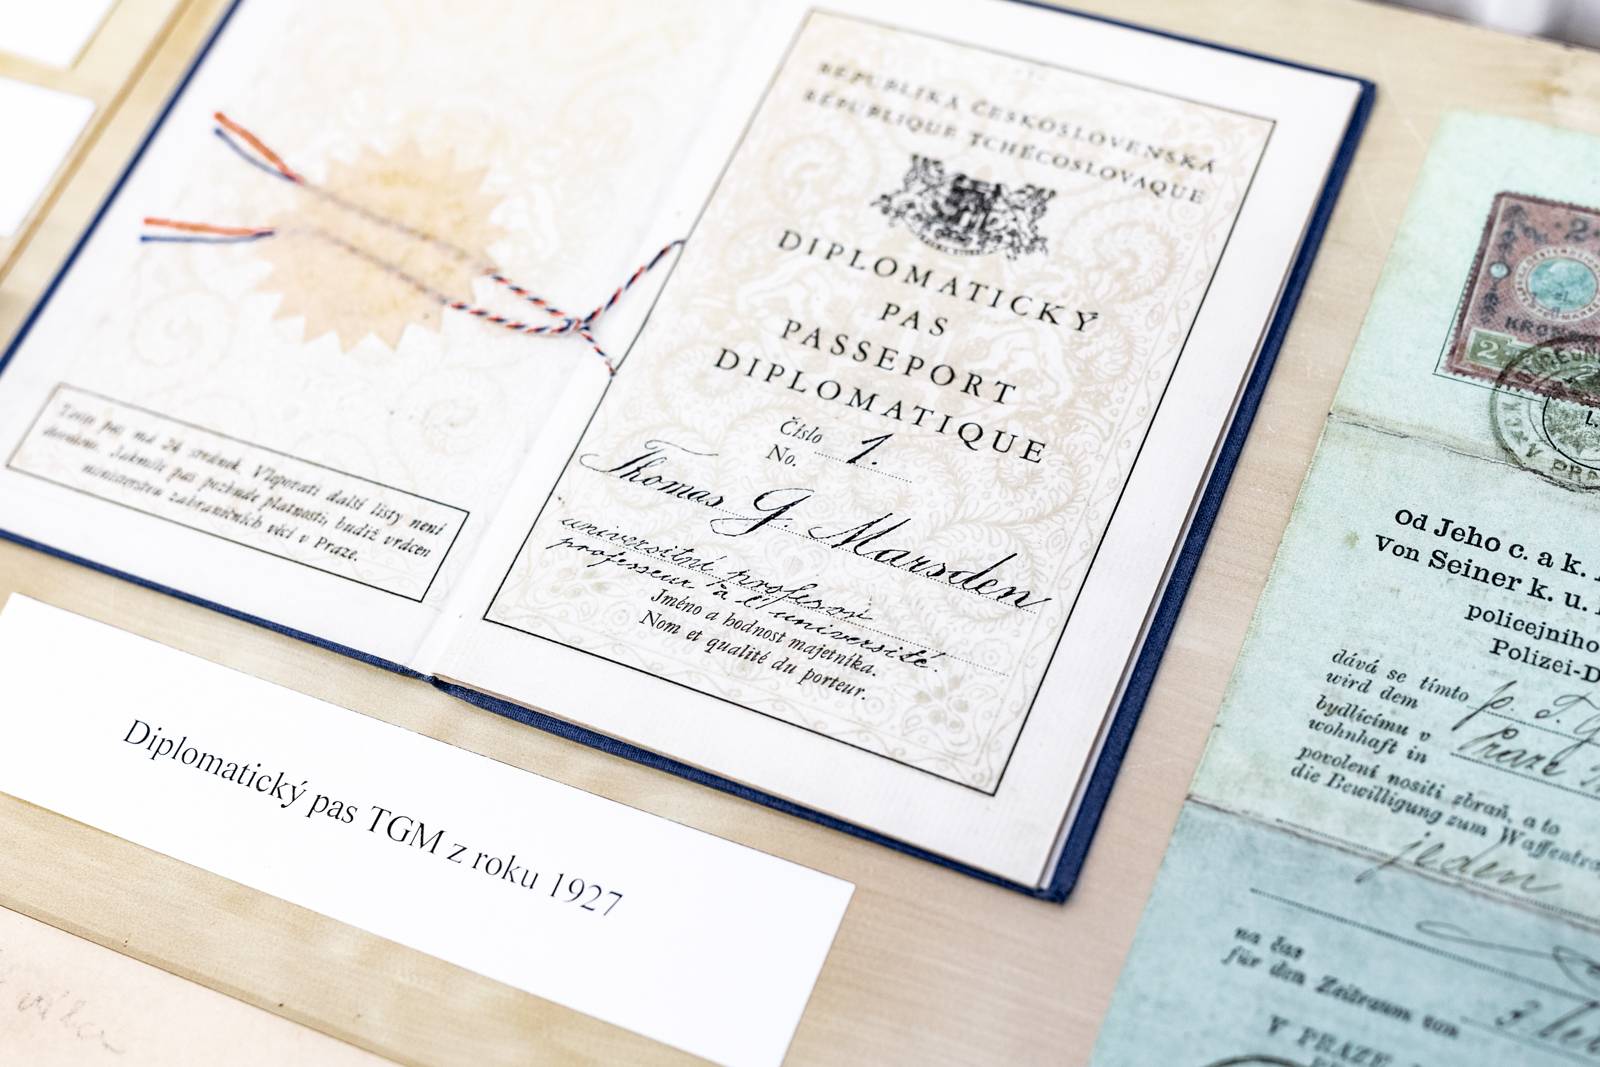 Tento pas má 24 stránek. Vlepovati další listy není
dovoleno. Jakmile pas pozbude platnosti, budiž vrácen
ministerstvu zahraničních věcí v Praze.
REPUBLIKA ČESKOSLOVENSKÁ
RÉPUBLIQUE TCHÉCOSLOVAQUE
DIPLOMATICKÝ
PAS
PASSEPORT
DIPLOMATIQUE
Číslo
No. 1.
Thomas G. Marsden
universitní profesor
professeur à l'université.
Jméno a hodnost majetníka.
Nom et qualité du porteur.
Diplomatický pas TGM z roku 1927
2
KRON
2
V PRA
Od Jeho c. a k.
Von Seiner k. u.
policejního
Polizei-D
dává se tímto p. T. G
wird dem
bydlícímu v Praze
wohnhaft in
povolení nositi zbraň, a to
die Bewilligung zum Waffentra
jeden
na čas
für den Zeitraum von 3
V PRAZE